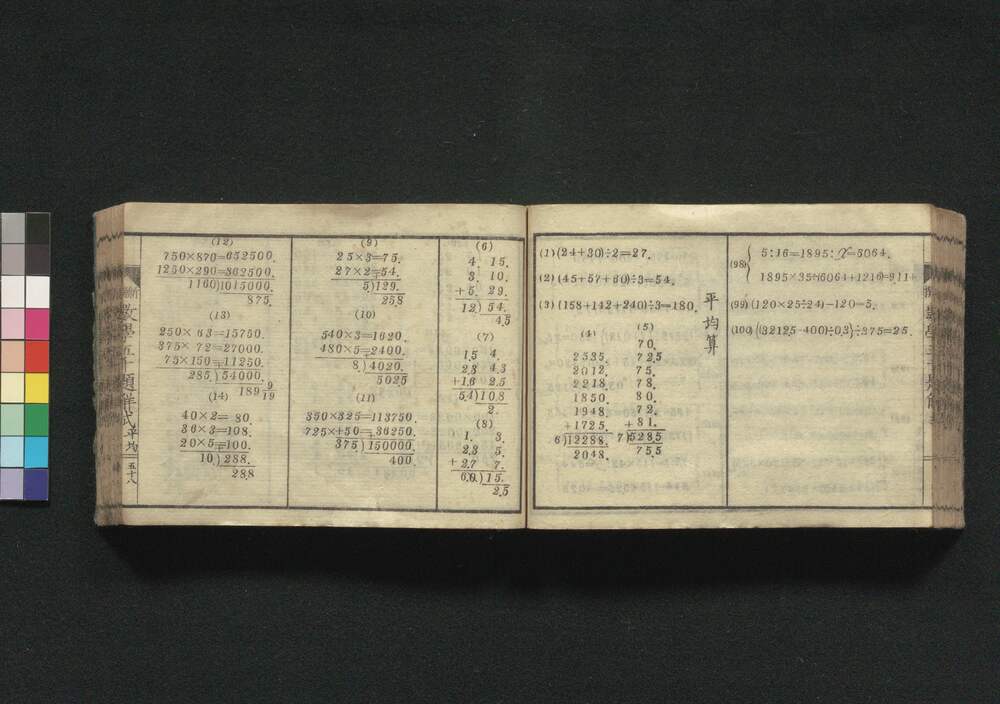 (98)
5:16=1895:x=6064.
(99) (120×25÷24)-120=5.
(100)
平均算
(1) (24+30)÷2=27.
(2) (45+57+60)÷3=54.
(3) (158+142+240)÷3=180.
(4)
2535.
2012.
2218.
1850.
1948.
+1725.
6)12288.
2048.
(5)
70.
72,5
75.
78.
80.
72.
+81.
7)528,5
75,5
(6)
4. 15.
3. 10.
+5. 29.
12)54.
4,5
(7)
1,5 4.
2,3 4,3
+1,6 2,5
5,4)10,8
2.
(8)
1. 3.
2,3 5.
+2,7 7.
6,0)15.
2,5
(9)
25×3=75.
27×2=54.
5)129.
25,8
(10)
540×3=1620.
480×5=2400.
8)4020.
502,5
(11)
350×325=113750.
725×+50=36250.
375)150000.
400.
(12)
750×870=652500.
1250×290=362500.
1160)1015000.
875.
(13)
250×63=15750.
375×72=27000.
75×150=11250.
285)54000.
189 9/19
(14)
40×2=80.
36×3=108.
20×5=100.
10)288.
28,8
數學五千題詳式
平均
五十八